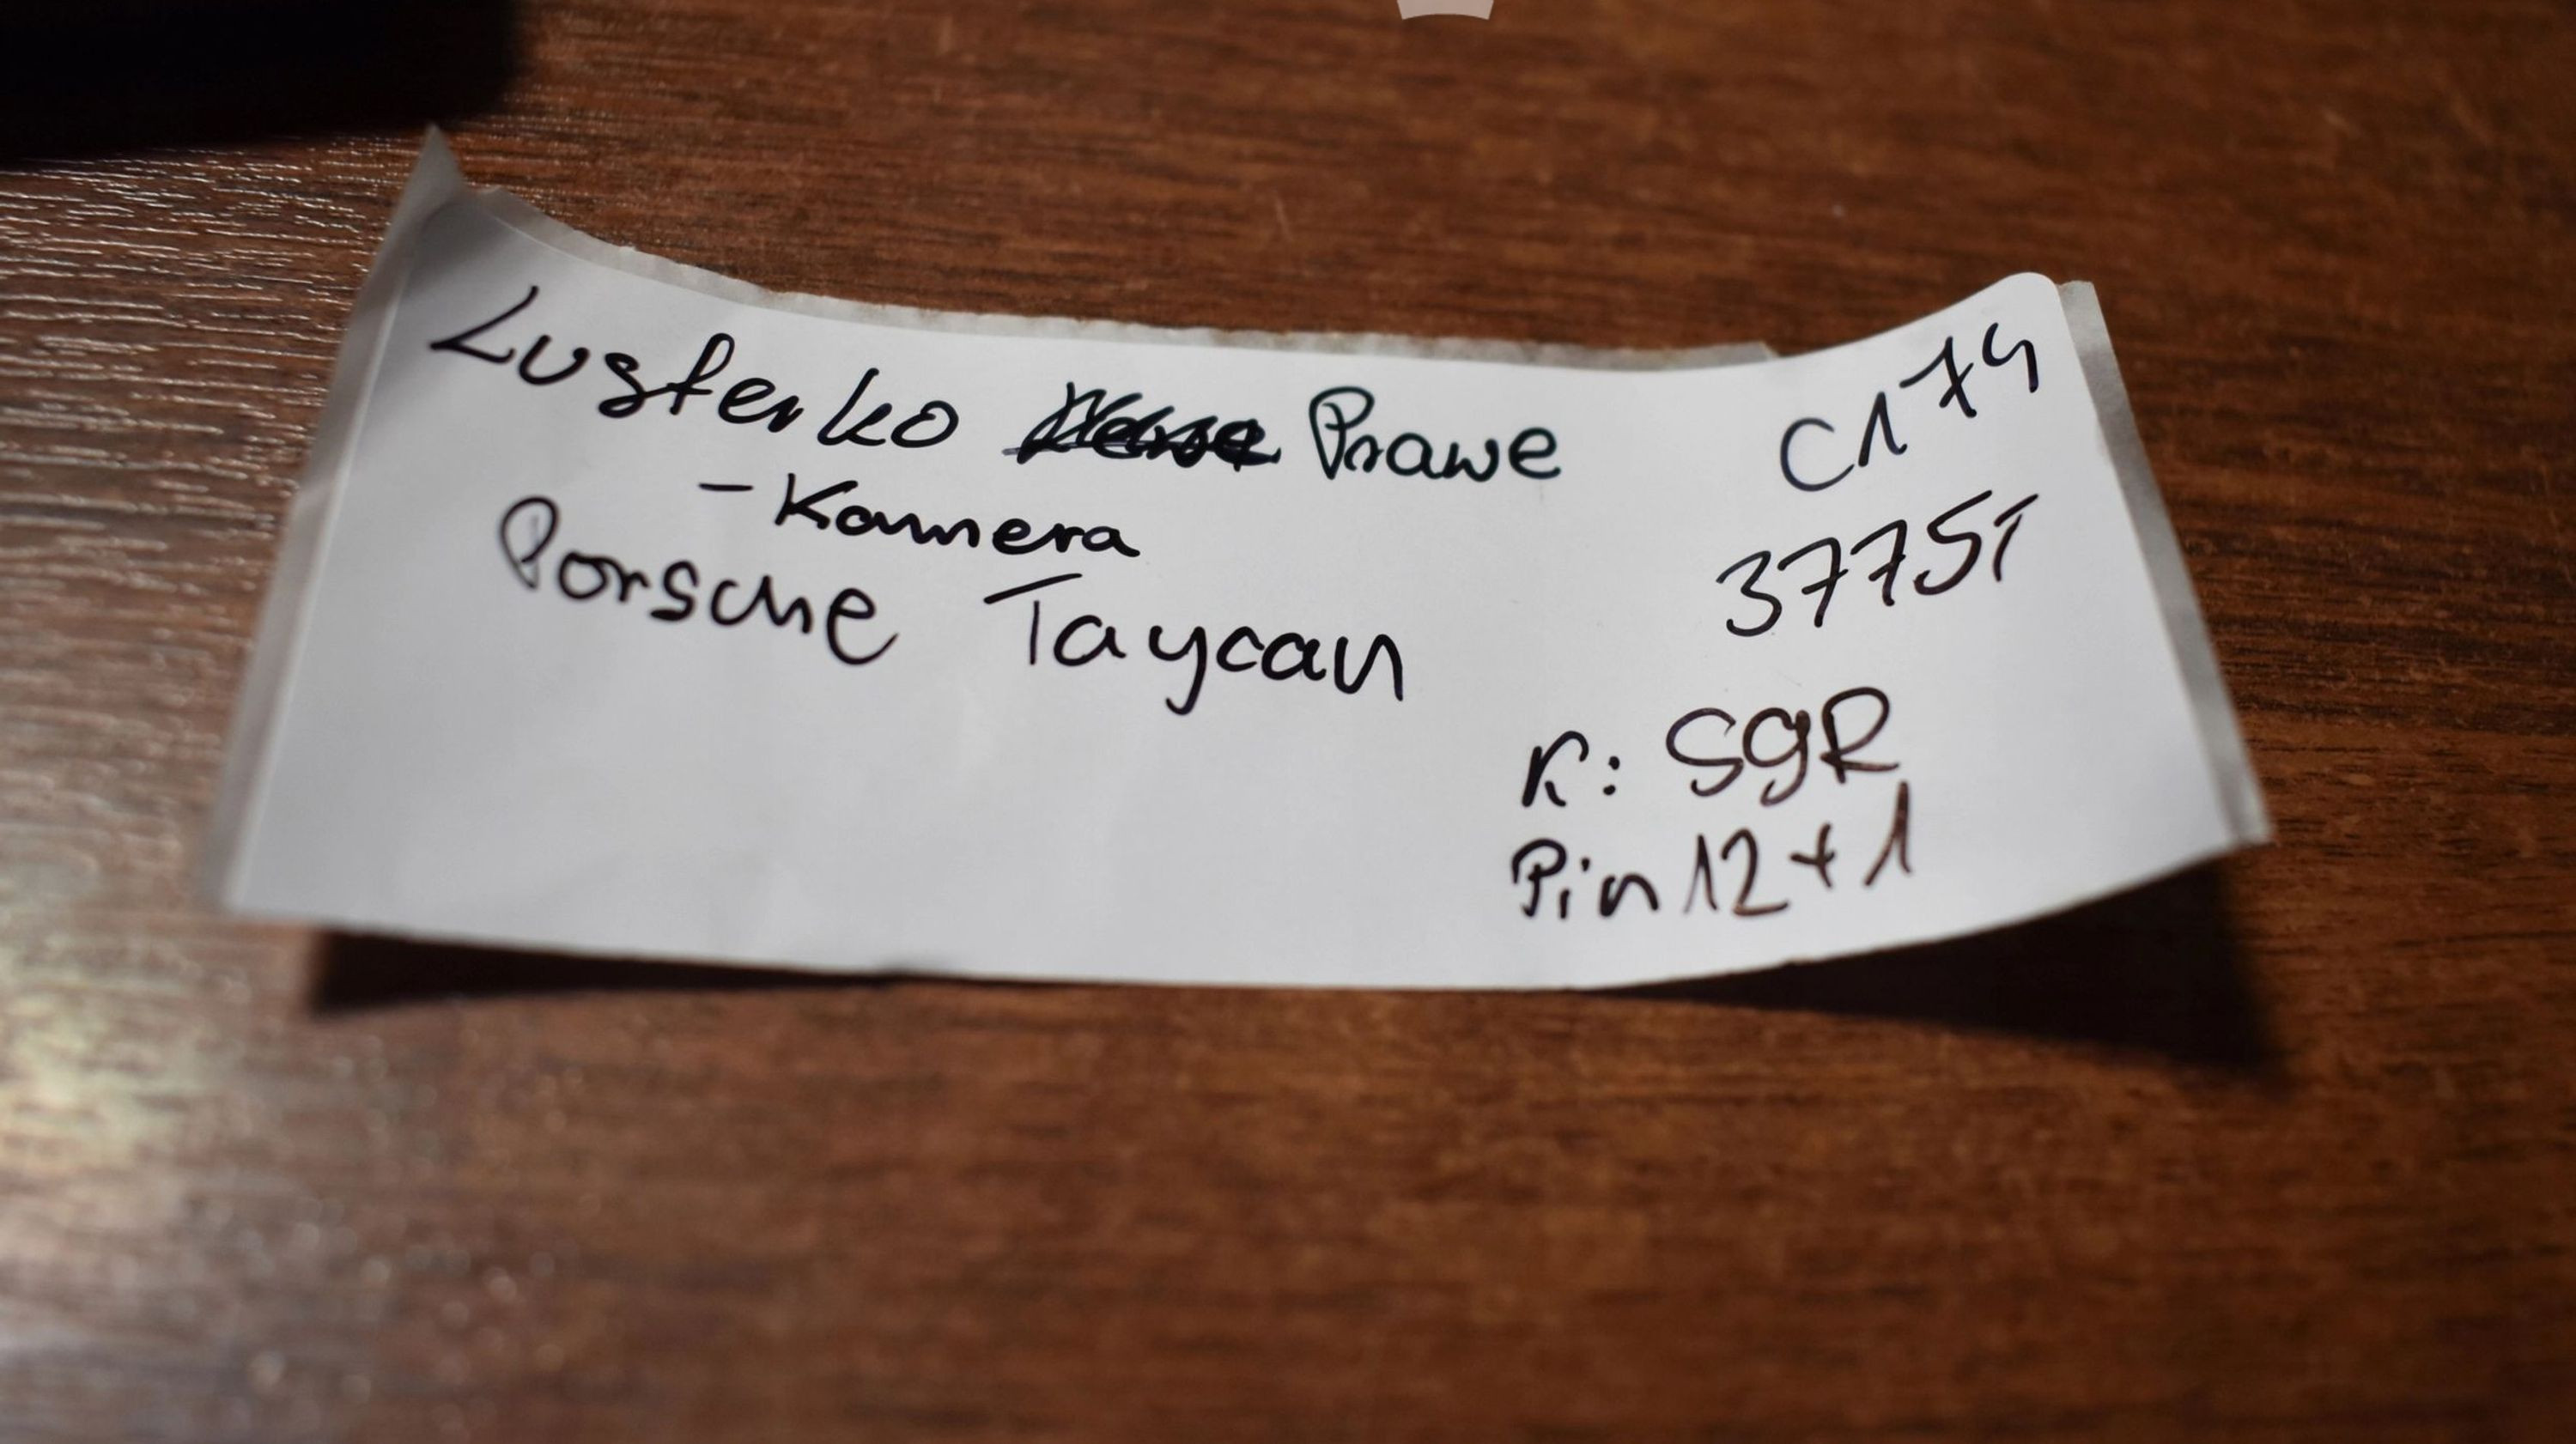 Lusterko Prawe
- Kamera
Porsche Taycan
C174
3775T
K: SGR
Pin 12+1